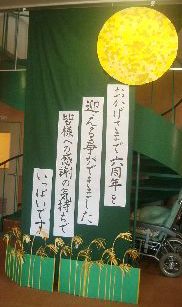 おかげさまで六周年を
迎える事ができました
皆様への感謝の気持ちで
いっぱいです